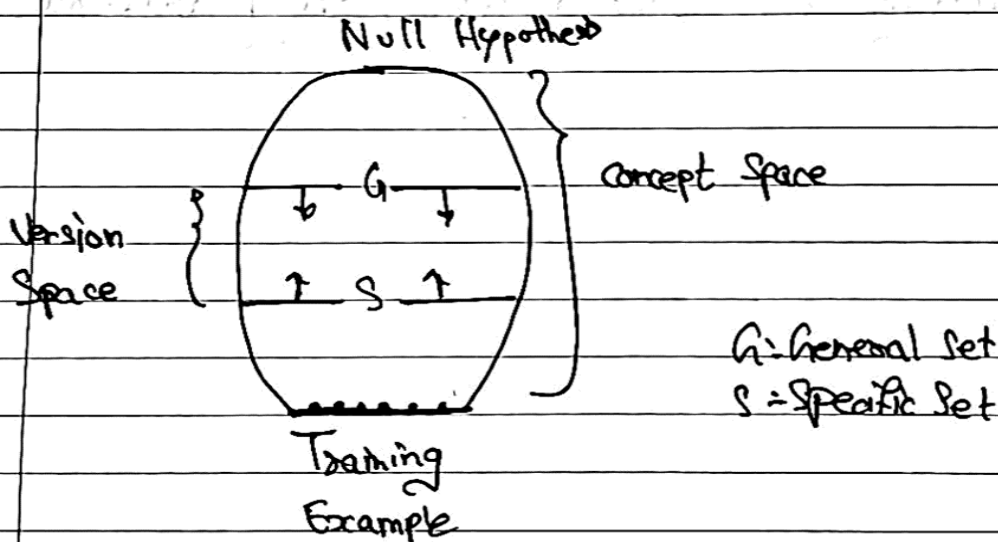 Null Hypothesis
G
Concept Space
Version
Space
S
G: General Set
S = Specific Set
Training
Example